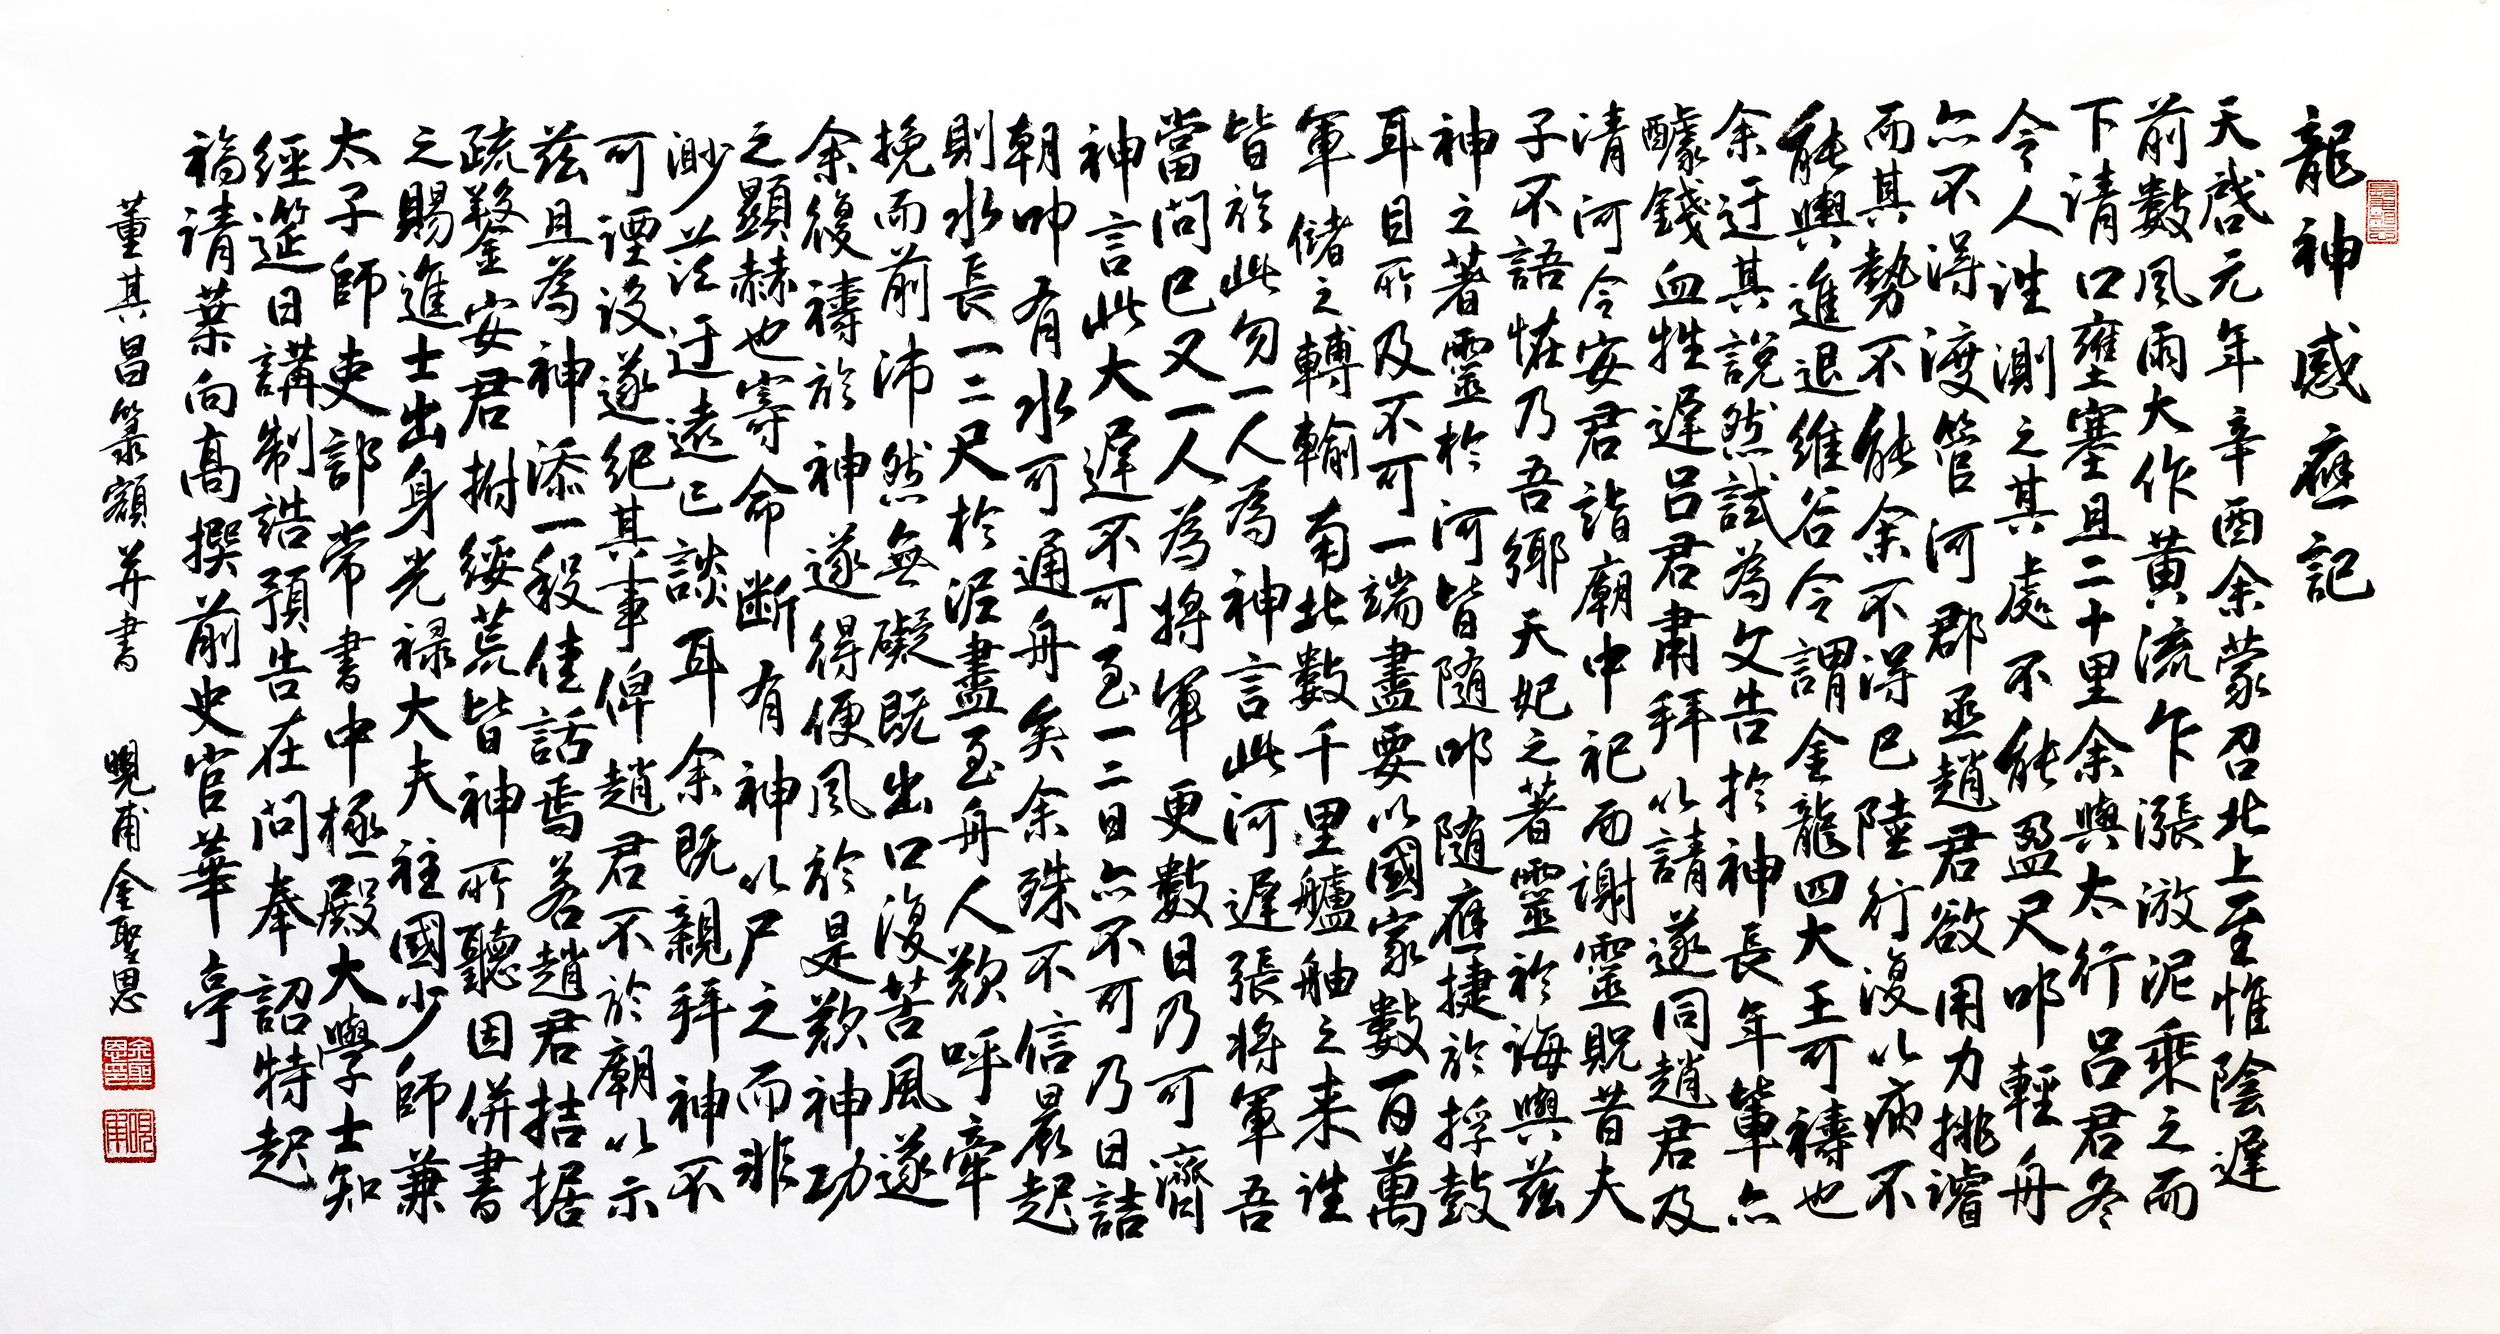 龍神感應記
天啟元年辛酉余蒙召北上至惟陰遲
前數風雨大作黃流乍漲淤泥乘之而
下清口壅塞且二十里余與太行呂君冬
令人往測之其處不能盈尺叩輕舟
亦不得渡管河郡丞趙君欲用力挑濬
而其勢不能余不得已陸行復以病不
能輿進退維谷令謂金龍四大王可禱也
余迂其說然試為文告於神長年輩亦
醵錢血牲遲呂君肅拜以請遂同趙君及
清河令安君詣廟中祀而謝靈貺昔夫
子不語怪乃吾鄉天妃之著靈於海與茲
神之著靈於河皆隨叩隨應捷於捊鼓
耳目所及不可一端盡要以國家數百萬
軍儲之轉輸南北數千里艫舳之來往
皆於此勿一人為神言此河遲張將軍吾
當問已又一人為將軍更數日乃可濟
神言此大遲不可至一二日亦不可乃日詰
朝叩有水可通舟矣余殊不信晨起
則水長一二尺於淤盡至舟人歡呼牽
挽而前沛然無礙既出口復苦風遂
余復禱於神遂得便風於是歎神功
之顯赫也寄命斷有神以尸之而非
渺茫迂遠已談耳余既親拜神不
可湮沒遂紀其事俾趙君不於廟以示
茲且為神添一段佳話焉若趙君拮据
疏鑿安君拊綏荒皆神所聽因併書
之賜進士出身光祿大夫柱國少師兼
太子師吏部常書中極殿大學士知
經筵日講制誥預告在問奉詔特起
福清葉向高撰前史官華亭
董其昌篆額并書 晛甫金聖恩